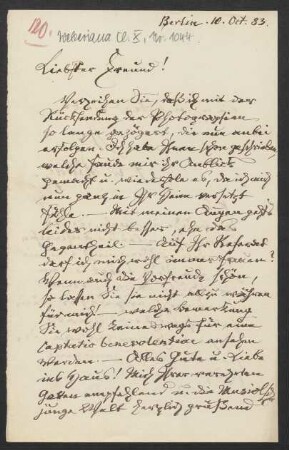 120.
Weberiana Cl. X, Nr. 1044
Berlin. 10. Oct. 83.
Liebster Freund!
Verzeihen Sie, daß ich mit der
Rücksendung der Photographien
so lange gezögert, die nun anbei
erfolgen. Ich habe Ihnen schon geschrieben,
welche Freude mir ihr Anblick
gemacht u. wiederhole es, daß ich mich
nun ganz in Ihr Heim versetzt
fühle — Mit meinen Augen geht's
leider nicht besser, eher das
Gegentheil — Auf Ihr Referat
darf ich mich wohl immer freuen?
Wenn auch die Vorfreude schön,
so lassen Sie sie nicht allzu währen
für mich! — welche Bemerkung
Sie wohl keineswegs für eine
captatio benevolentiae ansehen
werden — Alles Gute u. Liebe
ins Haus! Mich Ihrer verehrten
Gattin empfehlend u. die
junge Welt herzlich grüßend